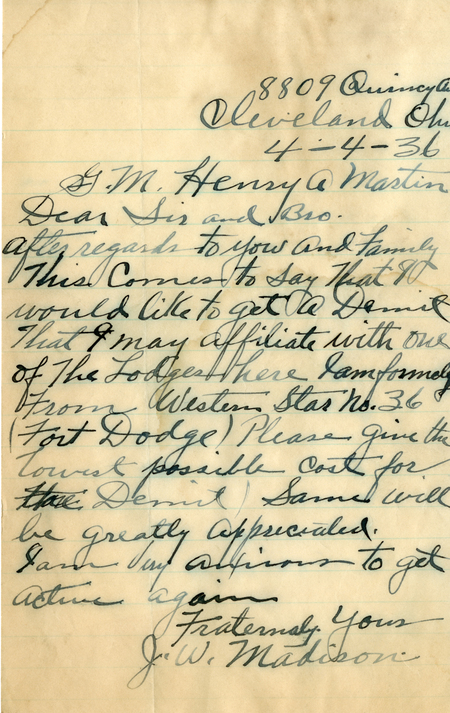 8809 Quincy Av
Cleveland Ohi
4-4-36
G.M. Henry A Martin
Dear Sir and Bro.
after regards to yow and family
This Comes to say that I
would like to get a Demit
That I may affiliate with one
of the Lodges here I am formely
From Western Star No. 36
(Fort Dodge) Please give the
lowest possible cost for
Demit) Same will
be greatly appreciated.
I am anxious to get
active again
Fraternaly Yours
J. W. Madison